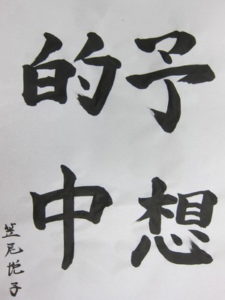 予想
的中
笠尾悦子